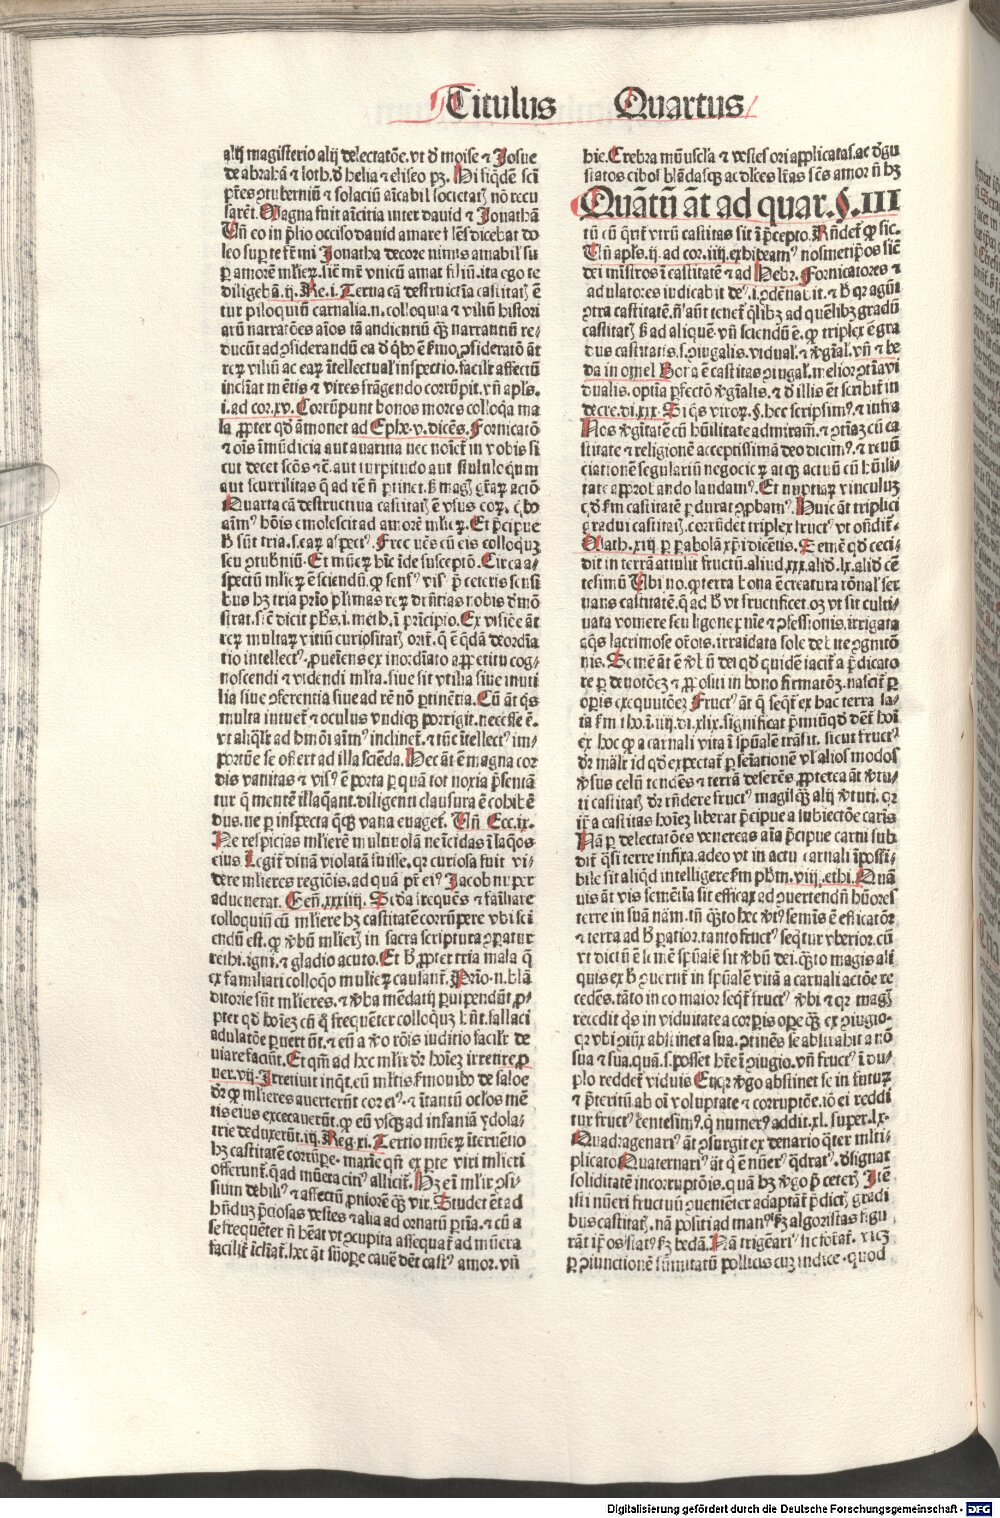 Titulus Quartus
alij magisterio alij delectatõe. vt d̃ moise ⁊ Josue
de abrahã ⁊ loth. d̃ helia ⁊ eliseo pꝫ. Hi siq̃dem scĩ
pr̃es ꝯtuberniũ ⁊ solaciũ aĩcabil̃ societatꝭ nõ recu
sarẽt. Magna fuit aĩcitia inter dauid ⁊ Jonathã
Uñ eo in p̃lio occiso dauid amare flẽs dicebat do
leo super te fr̃ mi Jonatha decore nimis amabil̃ su
ꝑ amorẽ mlieꝝ. sic̃ mr̃ vnicũ amat filiũ. ita ego te
diligebã. ij. Re. i. Terna cã destructĩa castitatꝭ ẽ
tur piloquiũ carnalia. n. colloquia ⁊ viliũ histori
arũ narratões aĩos tã andientiũ q̃ꝫ narrantiũ re⸗
ducũt ad ꝯsiderandũ ea d̃ qͥbꝰ ẽ ẜmo, ꝯsideratõ ãt
reꝝ viliũ ac eaꝝ ĩtellectual̃ inspectio. facilr̃ affectũ
inclĩat mẽtis ⁊ vires frãgendo corrũpit. vñ apl̃s.
i. ad cor. xv. Corrũpunt bonos mores colloq̃a ma
la ꝓpter qd̃ amonet ad Ephe. v. dicẽs. Fornicatõ
⁊ oĩs ĩmũdicia aut auaritia nec noĩet̃ in vobis si
cut decet scõs ⁊c̃. aut turpitudo aut stultiloquium
aut scurrilitas q̃ ad rẽ ñ ꝑtinet. ẜ magꝭ gr̃aꝝ actiõ
Quarta cã destructiua castitatꝭ ẽ vsus eoꝝ. qͥbꝰ
aĩmꝰ hoĩs emolescit ad amorẽ mlieꝝ. Et p̃cipue
h̃ sũt tria. s. eaꝝ aspectꝰ. Frequẽs cũ eis colloquiũ
seu ꝯtubniũ. Et mũeꝝ hĩc ĩde susceptõ. Circa a⸗
spectũ mlieꝝ ẽ sciendũ. ꝙ sensꝰ visꝰ p̃ ceteris sensi
bus hꝫ tria prĩo plimas reꝝ dr̃ñtias nobis demõ
strat. sic̃ dicit ph̃s. i. meth. ĩ prĩcipio. Ex visiõe ãt
reꝝ multaꝝ vitiũ curiositatꝭ orit̃. q̃ ẽ q̃dã deordĩa
tio intellectꝰ. ꝓueĩens ex inordĩato appetitu cog⸗
noscendi ⁊ videndi mlta. siue sit vtilia siue inuti
lia siue ꝯferentia siue ad rẽ nõ ꝑtinẽtia. Cũ ãt qͥs
multa intuet̃ ⁊ oculus vndiqꝫ porrigit. necesse ẽ.
vt aliqũ ad hmõi aĩmꝰ inclinet̃. ⁊ tũc ĩtellectꝰ im⸗
portũe se offert ad illa sciẽda. Hec ãt ẽ magna cor
dis vanitas ⁊ visꝰ ẽ porta ꝑ quã tot noxia p̃sentã
tur q̃ mentẽ illaq̃ant. diligenti clausura ẽ cohibẽ
dus. ne ꝑ inspecta q̃qꝫ vana euaget̃. Uñ Ecc. ix.
Ne respicias mlierẽ multiuolã ne ĩcidas ĩ laq̃os
eius Legit̃ dinã violatã fuisse. qꝛ curiosa fuit vi⸗
dere mlieres regiõis. ad quã pr̃ eiꝰ Jacob nuper
aduenerat. Geñ. xxxiiij. Scda frequẽs ⁊ familiare
colloquiũ cũ mliere hꝫ castitatẽ corrũpere vbi sci
endũ est. ꝙ v̾bũ mlierꝭ in sacra scriptura ꝯparatur
rethi. igni. ⁊ gladio acuto. Et h̃ ꝓpter tria mala q̃
ex familiari colloqͥo mulieꝝ causant̃. Prĩo. n. blã
ditorie sũt mlieres. ⁊ v̾ba mẽdatij ꝑuipendũt ꝓ⸗
pter qd̃ hoĩeꝫ cũ q̃ frequẽter colloquiũ hñt. fallaci
adulatõe ꝑuertũt. ⁊ eũ a v̾o rõis iuditio facilr̃ de
uiare faciũt. Et qm̃ ad hec mlir̃ d̃r hoĩeꝫ irretire ꝓ
uer. vij. Irretiuit inqͥt. eũ mltis ẜmonibꝰ de saloe
d̃r ꝙ mlieres auerterũt cor eiꝰ. ⁊ ĩtantũ ocl̃os mẽ
tis eius excecauerũt. ꝙ eũ vsqꝫ ad infaniã ydola⸗
trie deduxerũt. iij. Reg. xi. Tertio mũeꝝ ĩteruẽtio
hꝫ castitatẽ corrũpe. maxĩe qñ ex ꝑte viri mlieri
offerunt̃. q̃ ad mũera citiꝰ allicit̃. Hꝫ eĩ mlir̃ ꝯsi⸗
lium debilꝰ ⁊ affectũ ꝓniorẽ q̃ꝫ vir. Studet et̃ ad
hñduꝫ p̃ciosas vestes ⁊ alia ad ornatũ ꝑtĩa. ⁊ cũ a
se frequẽter ñ hẽat vt ꝯcupita assequat̃ ad mũera
facilit̃ ĩclĩat̃. hec ãt sũope cauẽ dẽt castꝰ amor. vñ
hie. Crebra munuscl̃a ⁊ vestes ori applicatas. ac d̃gu
statos cibos blãdasqꝫ ac dl̃ces lr̃as scũs amor ñ hꝫ
Quãtũ ãt ad quar. §. III
tũ cũ q̃rit̃ vtrũ castitas sit ĩ p̃cepto. Rñdet̃ ꝙ sic.
Uñ apl̃s. ij. ad cor. iiij. exhibeamꝰ nosmetip̃os sic̃
dei ministros ĩ castitatẽ ⁊ ad Hebr. Fornicatores ⁊
adulatores iudicabit deꝰ. i. ꝯdẽnabit. ⁊ h̃ qꝛ agũt
ꝯtra castitatẽ. ñ aũt tenet̃ qͥlibꝫ ad quẽlibꝫ gradũ
castitatꝭ ẜ ad aliquẽ. vñ sciendũ ẽ. ꝙ triplex ẽ gra
dus castitatis. s. ꝯiugalis. vidual̃. ⁊ v̾gĩal̃. vñ ⁊ be
da in omel̃ Bona ẽ castitas ꝯiugal̃. melior ꝯtĩavi
dualis. optĩa ꝑfectõ v̾gĩalis. ⁊ d̃ illis ẽt scribit̃ in
decre. di. xxx. Si qͥs viroꝝ. §. hec scripsimꝰ. ⁊ infra
Nos v̾gĩtatẽ cũ hũilitate admiram̃. ⁊ ꝯtĩaꝫ cũ ca
stitate ⁊ religionẽ acceptissimã deo dicimꝰ. ⁊ renũ
ciationẽ seculariũ negocioꝝ atqꝫ actuũ cũ hũili⸗
tate approbando laudamꝰ. Et nuptiaꝝ vinculuꝫ
qd̃ ẜm castitatẽ ꝑdurat ꝯprobamꝰ. Huic ãt triplici
gradui castitatꝭ. corrñdet triplex fructꝰ vt oñdit̃.
Math. xiij. ꝑ ꝑabolã xp̃i dicẽtis. Semẽ qd̃ ceci⸗
dit in terrã attulit fructũ. aliud. xxx. aliď. lx. aliď cẽ
tesimũ Ubi no. ꝙ terra bona ẽ creatura rõnal̃ ser
uans castitatẽ. q̃ ad h̃ vt fructificet. oꝫ vt sit culti⸗
uata vomere seu ligone pẽnĩe ⁊ ꝯfessionis. irrigata
aqͥs lacrimose orõis. irraidata sole debite ꝯgnitõ
nis. Semẽ ãt ẽ v̾bũ dei qd̃ quidẽ iacit̃ a p̃dicato
re ꝑ deuotõeꝫ ⁊ ꝓpositi in bono firmatõꝫ. nascit̃ ꝑ
oꝑis exequutõeꝫ Fructꝰ ãt q̃ seqͥt̃ ex hac terra iac
ta ẜm tho. ĩ. iiij. di. xlix. significat p̃miũ qd̃ dẽt̃ hoĩ
ex hoc ꝙ a carnali vita ĩ spũalẽ trãsit. sicut fructꝰ
d̃r mãlr̃ id qd̃ expectat̃ ꝑ semĩationẽ vl̃ alios modos
v̾sus celũ tendẽs ⁊ terrã deserẽs. ꝓpterea ãt v̾tu⸗
ti castitatꝭ d̃r rñdere fructꝰ magisq̃ꝫ alij v̾tuti. qꝛ
ip̃a castitas hoĩeꝫ liberat p̃cipue a subiectiõe carĩs
Nã ꝑ delectatões venereas aĩa p̃cipue carni sub
dit̃. q̃si terre infixa. adeo vt in actu carnali ĩpossi⸗
bile sit aliqͥd intelligere ẜm ph̃m. viij. ethi. Quã
uis ãt vis semẽtĩa sit efficax ad ꝯuertendũ hũores
terre in suã nãm. tñ q̃to hec v̾tꝰ semĩs ẽ efficatiõr
⁊ terra ad h̃ paratior. tanto fructꝰ seqͥtur vberior. cũ
vt dictũ ẽ semẽ spũale sit v̾bũ dei. q̃to magis ali
quis ex h̃ ꝯuertit̃ in spũalẽ vitã a carnali actiõe re
cedẽs. tãto in eo maior seqͥt̃ fructꝰ v̾bi ⁊ qꝛ magꝭ
recedit qͥs in viduitate a corꝑis oꝑe q̃ꝫ ex ꝯiugio.
qꝛ vbi ꝯiũx abstinet a sua. ꝯtinẽs se abstinet a nõ
sua ⁊ sua. quã. s. posset hr̃e ĩ ꝯiugio. vñ fructꝰ ĩ du⸗
plo reddet̃ viduis Et qꝛ v̾go abstinet se in futuꝝ
⁊ p̃teritũ ab oĩ voluptate ⁊ corruptõe. iõ ei reddi
tur fructꝰ cẽntesimꝰ. q̃ numerꝰ addit. xl. super. lx.
Quadragenariꝰ ãt ꝯsurgit ex denario q̃ter mlti⸗
plicato Quaternariꝰ ãt q̃ ẽ nũerꝰ q̃dratꝰ. d̃signat
soliditatẽ incorruptõis. quã hꝫ v̾go p̃ ceterꝭ Itẽ
isti nũeri fructuũ ꝯuenieter adaptãt̃ p̃dictꝭ gradi
bus castitatꝭ. nã positi ad manꝰ ẜꝫ algoristas figu
rãt ip̃os statꝰ ẜꝫ bedã. Nã trigeñariꝰ sic format̃. viꝫ
ꝑ ꝯiunctionẽ sũmitatũ pollicis cuꝫ indice. quod
Digitalisierung gefördert durch die Deutsche Forschungsgemeinschaft - DFG